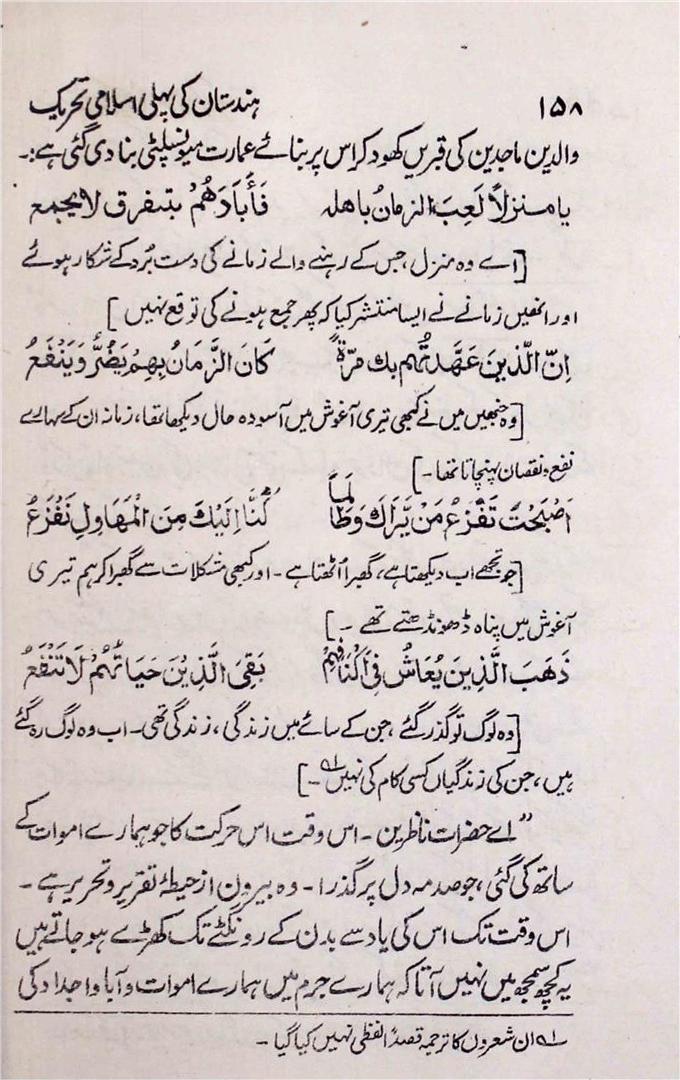 ۱۵۸ ہندستان کی پہلی اسلامی تحریک
والدین ماجدین کی قبریں کھود کر اس پر بنائے عمارت میونسپلٹی بنا دی گئی ہے:۔
یا منزلاً لَعِبَ الزمانُ باھلہ فَأَبَادَهُمُ بتفرق لا یجمع
[اے وہ منزل، جس کے رہنے والے زمانے کی دست بُرد کے شکار ہوئے
اور انھیں زمانے نے ایسا منتشر کیا کہ پھر جمع ہونے کی توقع نہیں]
اِنّ الّذینَ عَهَّدتُهم بك مرّةً كَانَ الزَّمَانُ بِهِمُ یَضُرُّ وَیَنْفَعُ
[وہ جنھیں میں نے کبھی تیری آغوش میں آسودہ حال دیکھا تھا، زمانہ ان کے سہارے
نفع و نقصان پہنچاتا تھا۔]
اَصْبَحْتَ تَفْزَعُ مَنْ یَّرَاكَ وَطَالَمَا كُنَّا اِلَیْكَ مِنَ الْمَهَاوِلِ نَفْزَعُ
[جو تجھے اب دیکھتا ہے، گھبرا اُٹھتا ہے۔ اور کبھی مشکلات سے گھبرا کر ہم تیری
آغوش میں پناہ ڈھونڈھتے تھے۔]
ذَهَبَ الَّذِینَ یُعَاشُ فِی اَكْنَافِهِمُ بَقیَ الَّذِیْنَ حَیَاتُهُمُ لَا تَنْفَعُ
[وہ لوگ تو گذر گئے، جن کے سائے میں زندگی، زندگی تھی۔ اب وہ لوگ رہ گئے
ہیں، جن کی زندگیاں کسی کام کی نہیں ؎۱۔]
”اے حضرات ناظرین۔ اس وقت اس حرکت کا جو ہمارے اموات کے
ساتھ کی گئی، جو صدمہ دل پر گذرا۔ وہ بیرون از حیطۂ تقریر و تحریر ہے۔
اس وقت تک اس کی یاد سے بدن کے رونگٹے تک کھڑے ہو جاتے ہیں
یہ کچھ سمجھ میں نہیں آتا کہ ہمارے جرم میں ہمارے اموات و آبا و اجداد کی
؎۱ ان شعروں کا ترجمہ قصداً لفظی نہیں کیا گیا۔